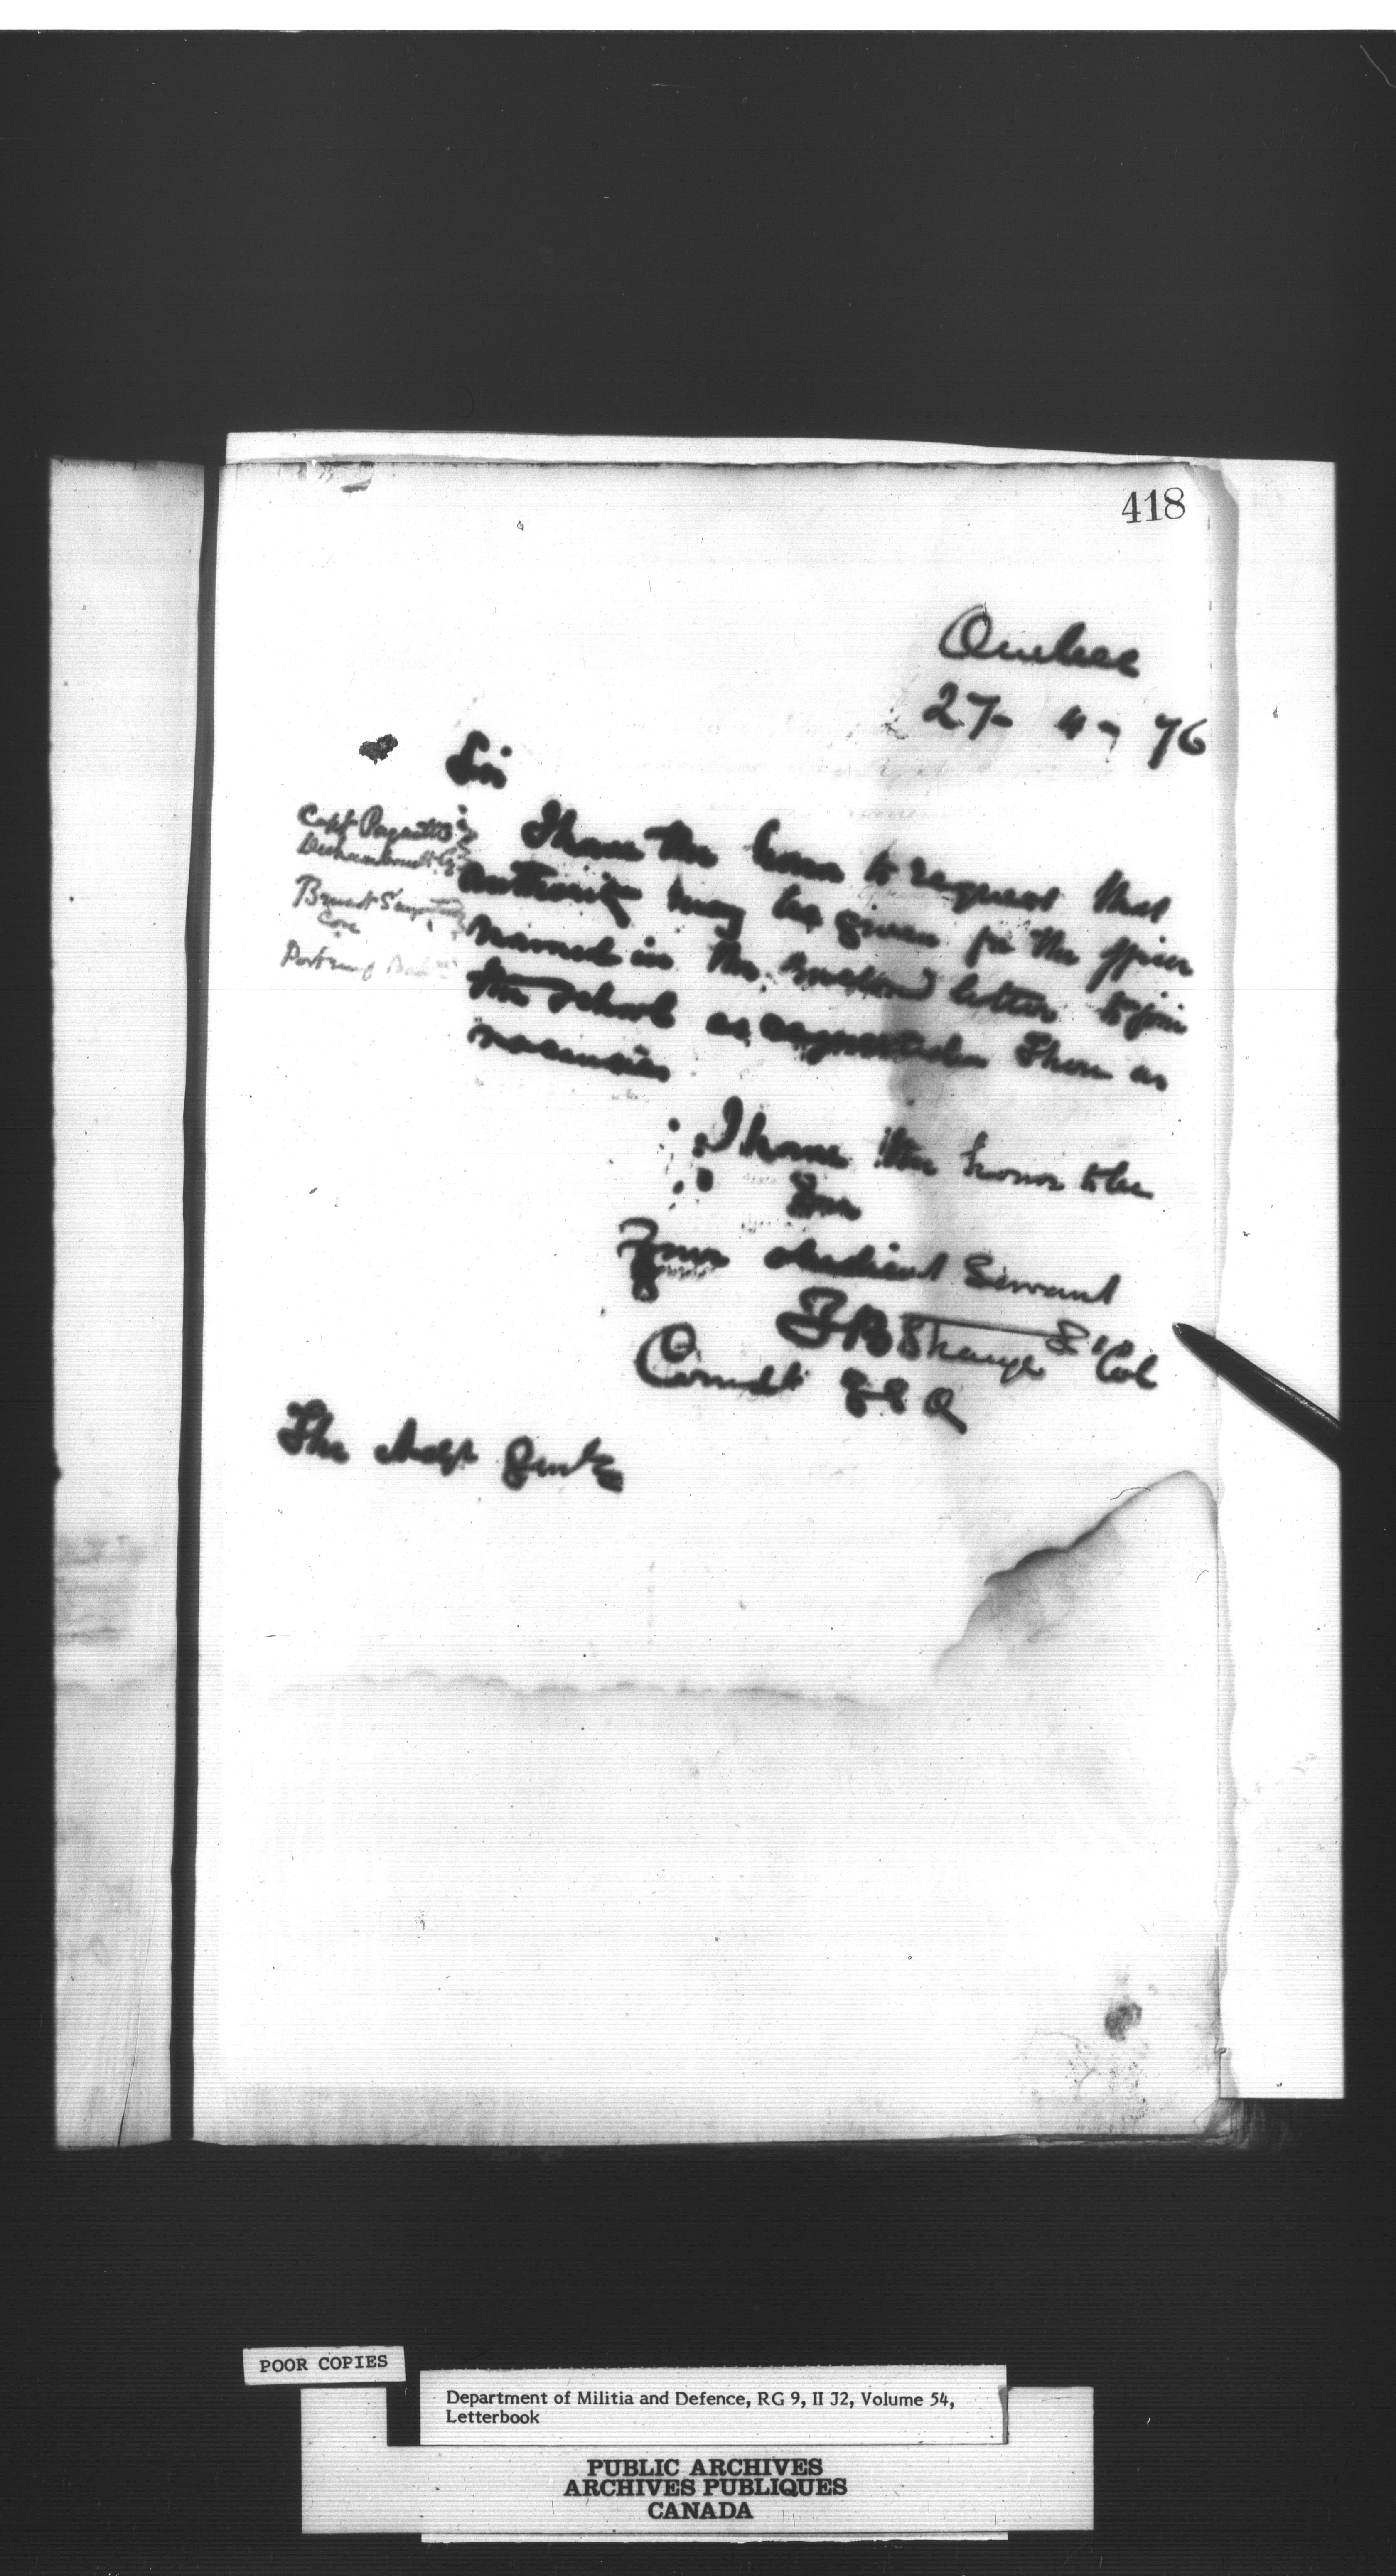 418
Quebec
27- 4- 76
Sir
Capt
I have the honor to request that
authority may be given for the officer
named in the letter to join
the school as There are
vacancies
I have the honor to be
Sir
Your obedient Servant
T B Strange Lt Col
Comdt G S Q
The
POOR COPIES
Department of Militia and Defence, RG 9, II J2, Volume 54,
Letterbook
PUBLIC ARCHIVES
ARCHIVES PUBLIQUES
CANADA